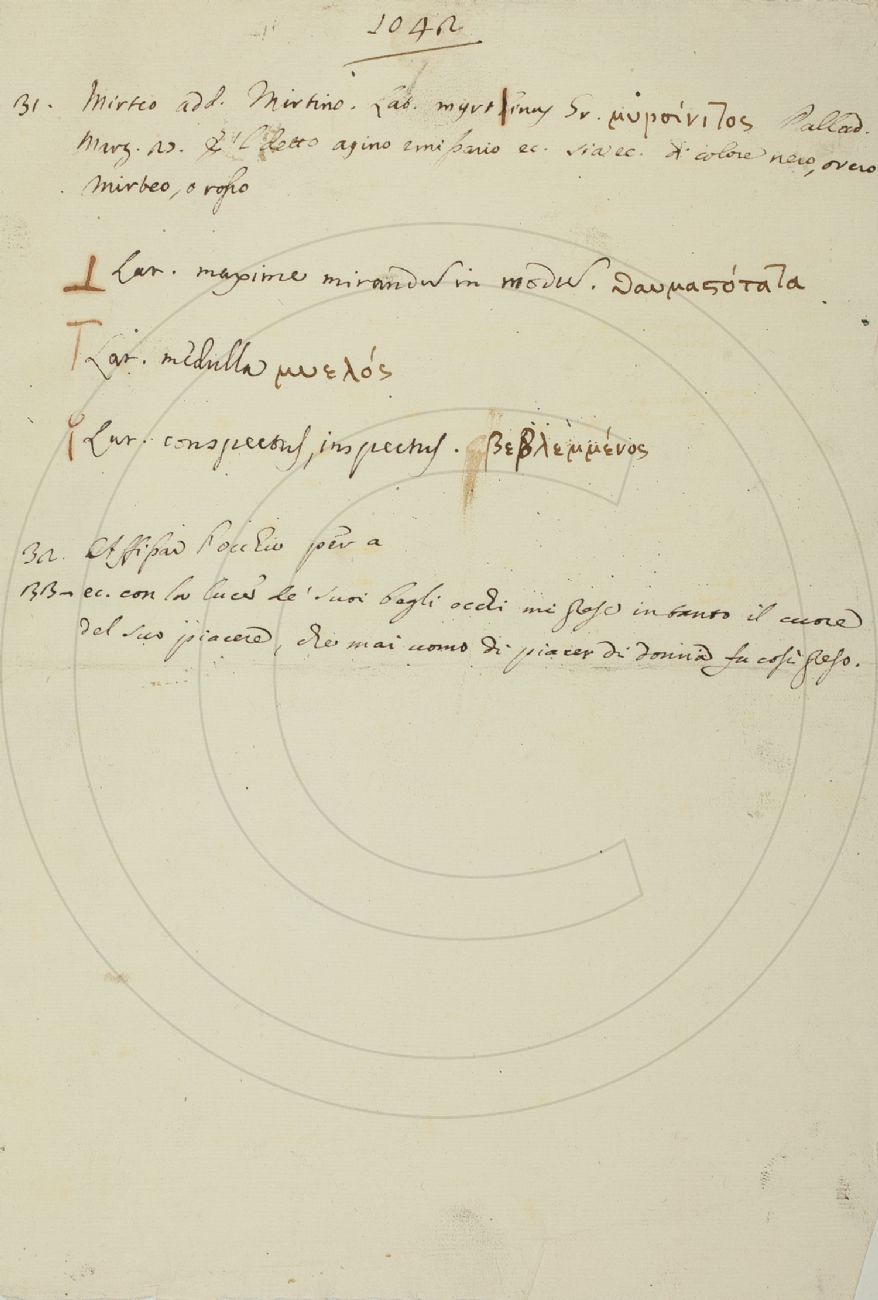 1042
31. Mirteo add. Mirtino. Lat. myrtinus Gr. μυρσίνιτος Pallad.
Marz. 10. detto asino emissario ec. sia ec. di colore nero, overo
mirteo, o rosso
Lat. maxime mirandū in modū. θαυμαςότατα
Lat. medulla μυελός
Lat. conspectus, inspectus. βεβλεμμένος
32. Affissar l'occhio per a
33 ec. con la luce de' suoi begli occhi mi prese intanto il cuore
del suo piacere, che mai uomo di piacer di donna fu così preso.